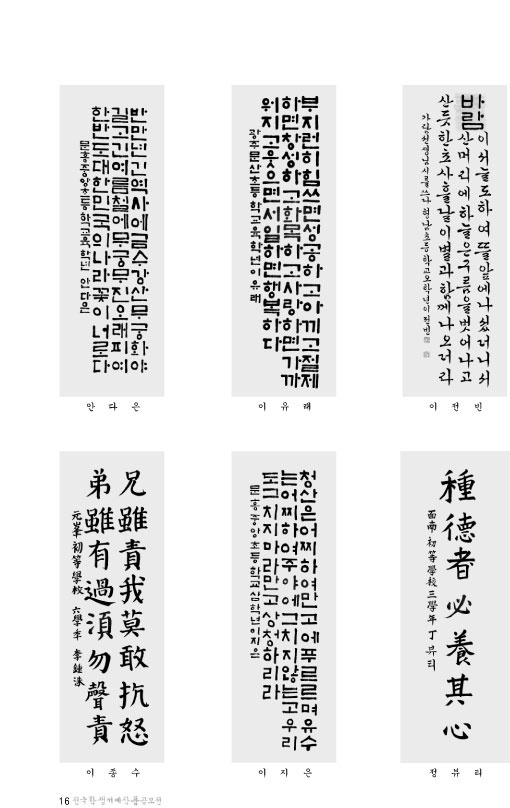 반만년긴역사에금수강산무궁화야
길고긴여름철에무궁무진오래피여
한반도대한민국의나라꽃이너로다
문흥중앙초등학교육학년 안다은
안 다 은
부지런히힘쓰면성공하고아끼고절제
하면창성하고화목하고사랑하면가까
워지고웃으면서일하면행복하다
광주문산초등학교육학년이유래
이 유 래
바람이서늘도하여뜰앞에나섰더니서
산머리에하늘은구름을벗어나고
산듯한초사흘달이별과함께나오더라
가람선생님시를쓰다 초등학교오학년이전빈
이 전 빈
兄雖責我莫敢抗怒
弟雖有過須勿聲責
元峯初等學校 六學年 李鍾洙
이 종 수
청산은어찌하여만고에푸르르며유수
는어찌하여주야에그치지않는고우리
도그치지마라만고상청하리라
문흥중앙초등학교삼학년이지은
이 지 은
種德者必養其心
西南初等學校三學年丁뷰티
정 뷰 티
16 전국학생서예작품공모전